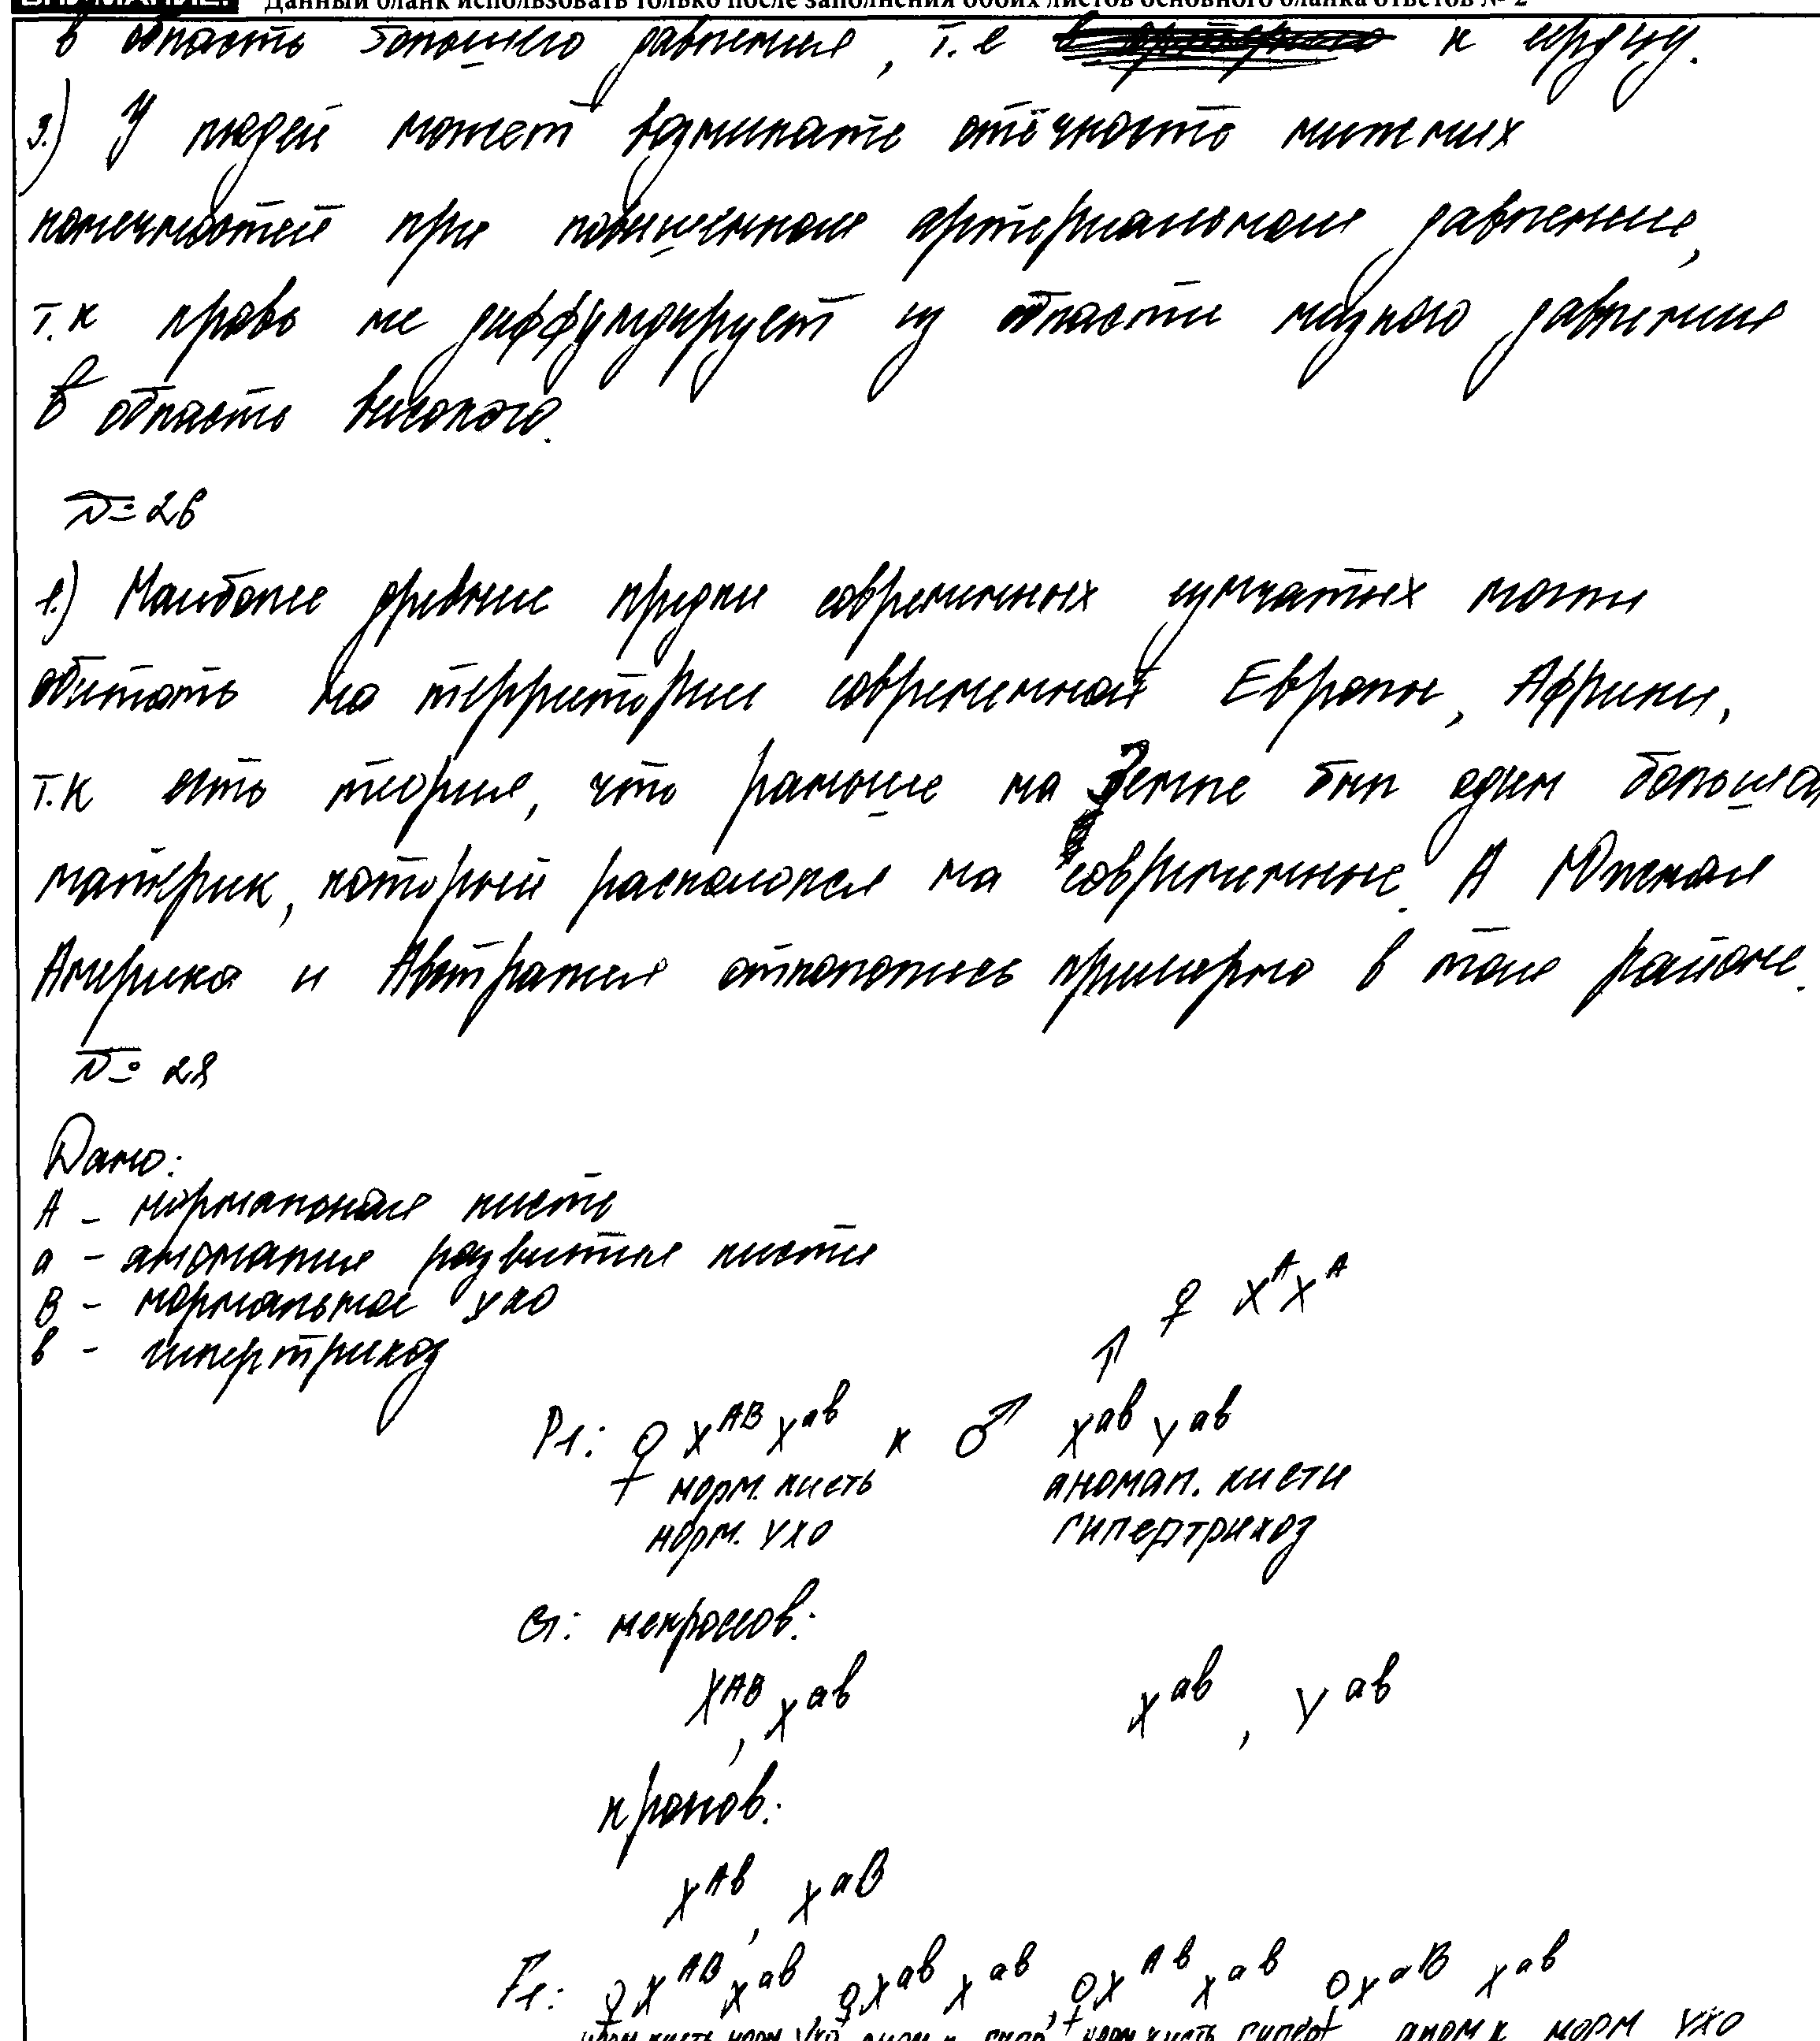 Данный бланк использовать только после заполнения обоих листов основного бланка ответов № 2
в область большего давления, т.е к сердцу.
3.) У людей может возникать отёчность нижних
конечностей при повышенном артериальном давлении,
т.к кровь не диффундирует из области низкого давления
в область высокого.
№ 26
1.) Наиболее древние предки современных сумчатых могли
обитать на территории современной Европы, Африки,
т.к есть теория, что раньше на Земле был один большой
материк, который раскололся на современные. А Южная
Америка и Австралия откололись примерно в том районе.
№ 28
Дано:
A - нормальная кисть
a - аномалия развития кисти
B - нормальное ухо
в - гипертрихоз
♀ X^A X^A
P1: ♀ X^AB X^aв x ♂ X^aв Y^aв
норм. кисть аномал. кисти
норм. ухо гипертрихоз
G: некроссов:
X^AB, X^aв X^aв, Y^aв
кросов:
X^Aв, X^aB
F1: ♀X^AB X^aв ♀X^aв X^aв, ♀X^Aв X^aв ♀X^aB X^aв
норм кисть норм ухо, норм кисть гиперт аном к норм ухо